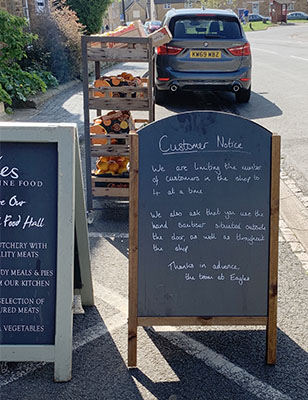 Customer Notice
We are limiting the number
of customers in the shop to
4 at a time
We also ask that you use the
hand sanitiser situated outside
the door, as well as throughout
the shop
Thanks in advance
the team at Eagles
les
INE FOOD
e Our
Food Hall
UTCHERY WITH
LITY MEATS
DY MEALS & PIES
M OUR KITCHEN
SELECTION OF
URED MEATS
VEGETABLES
KW69 ZBC